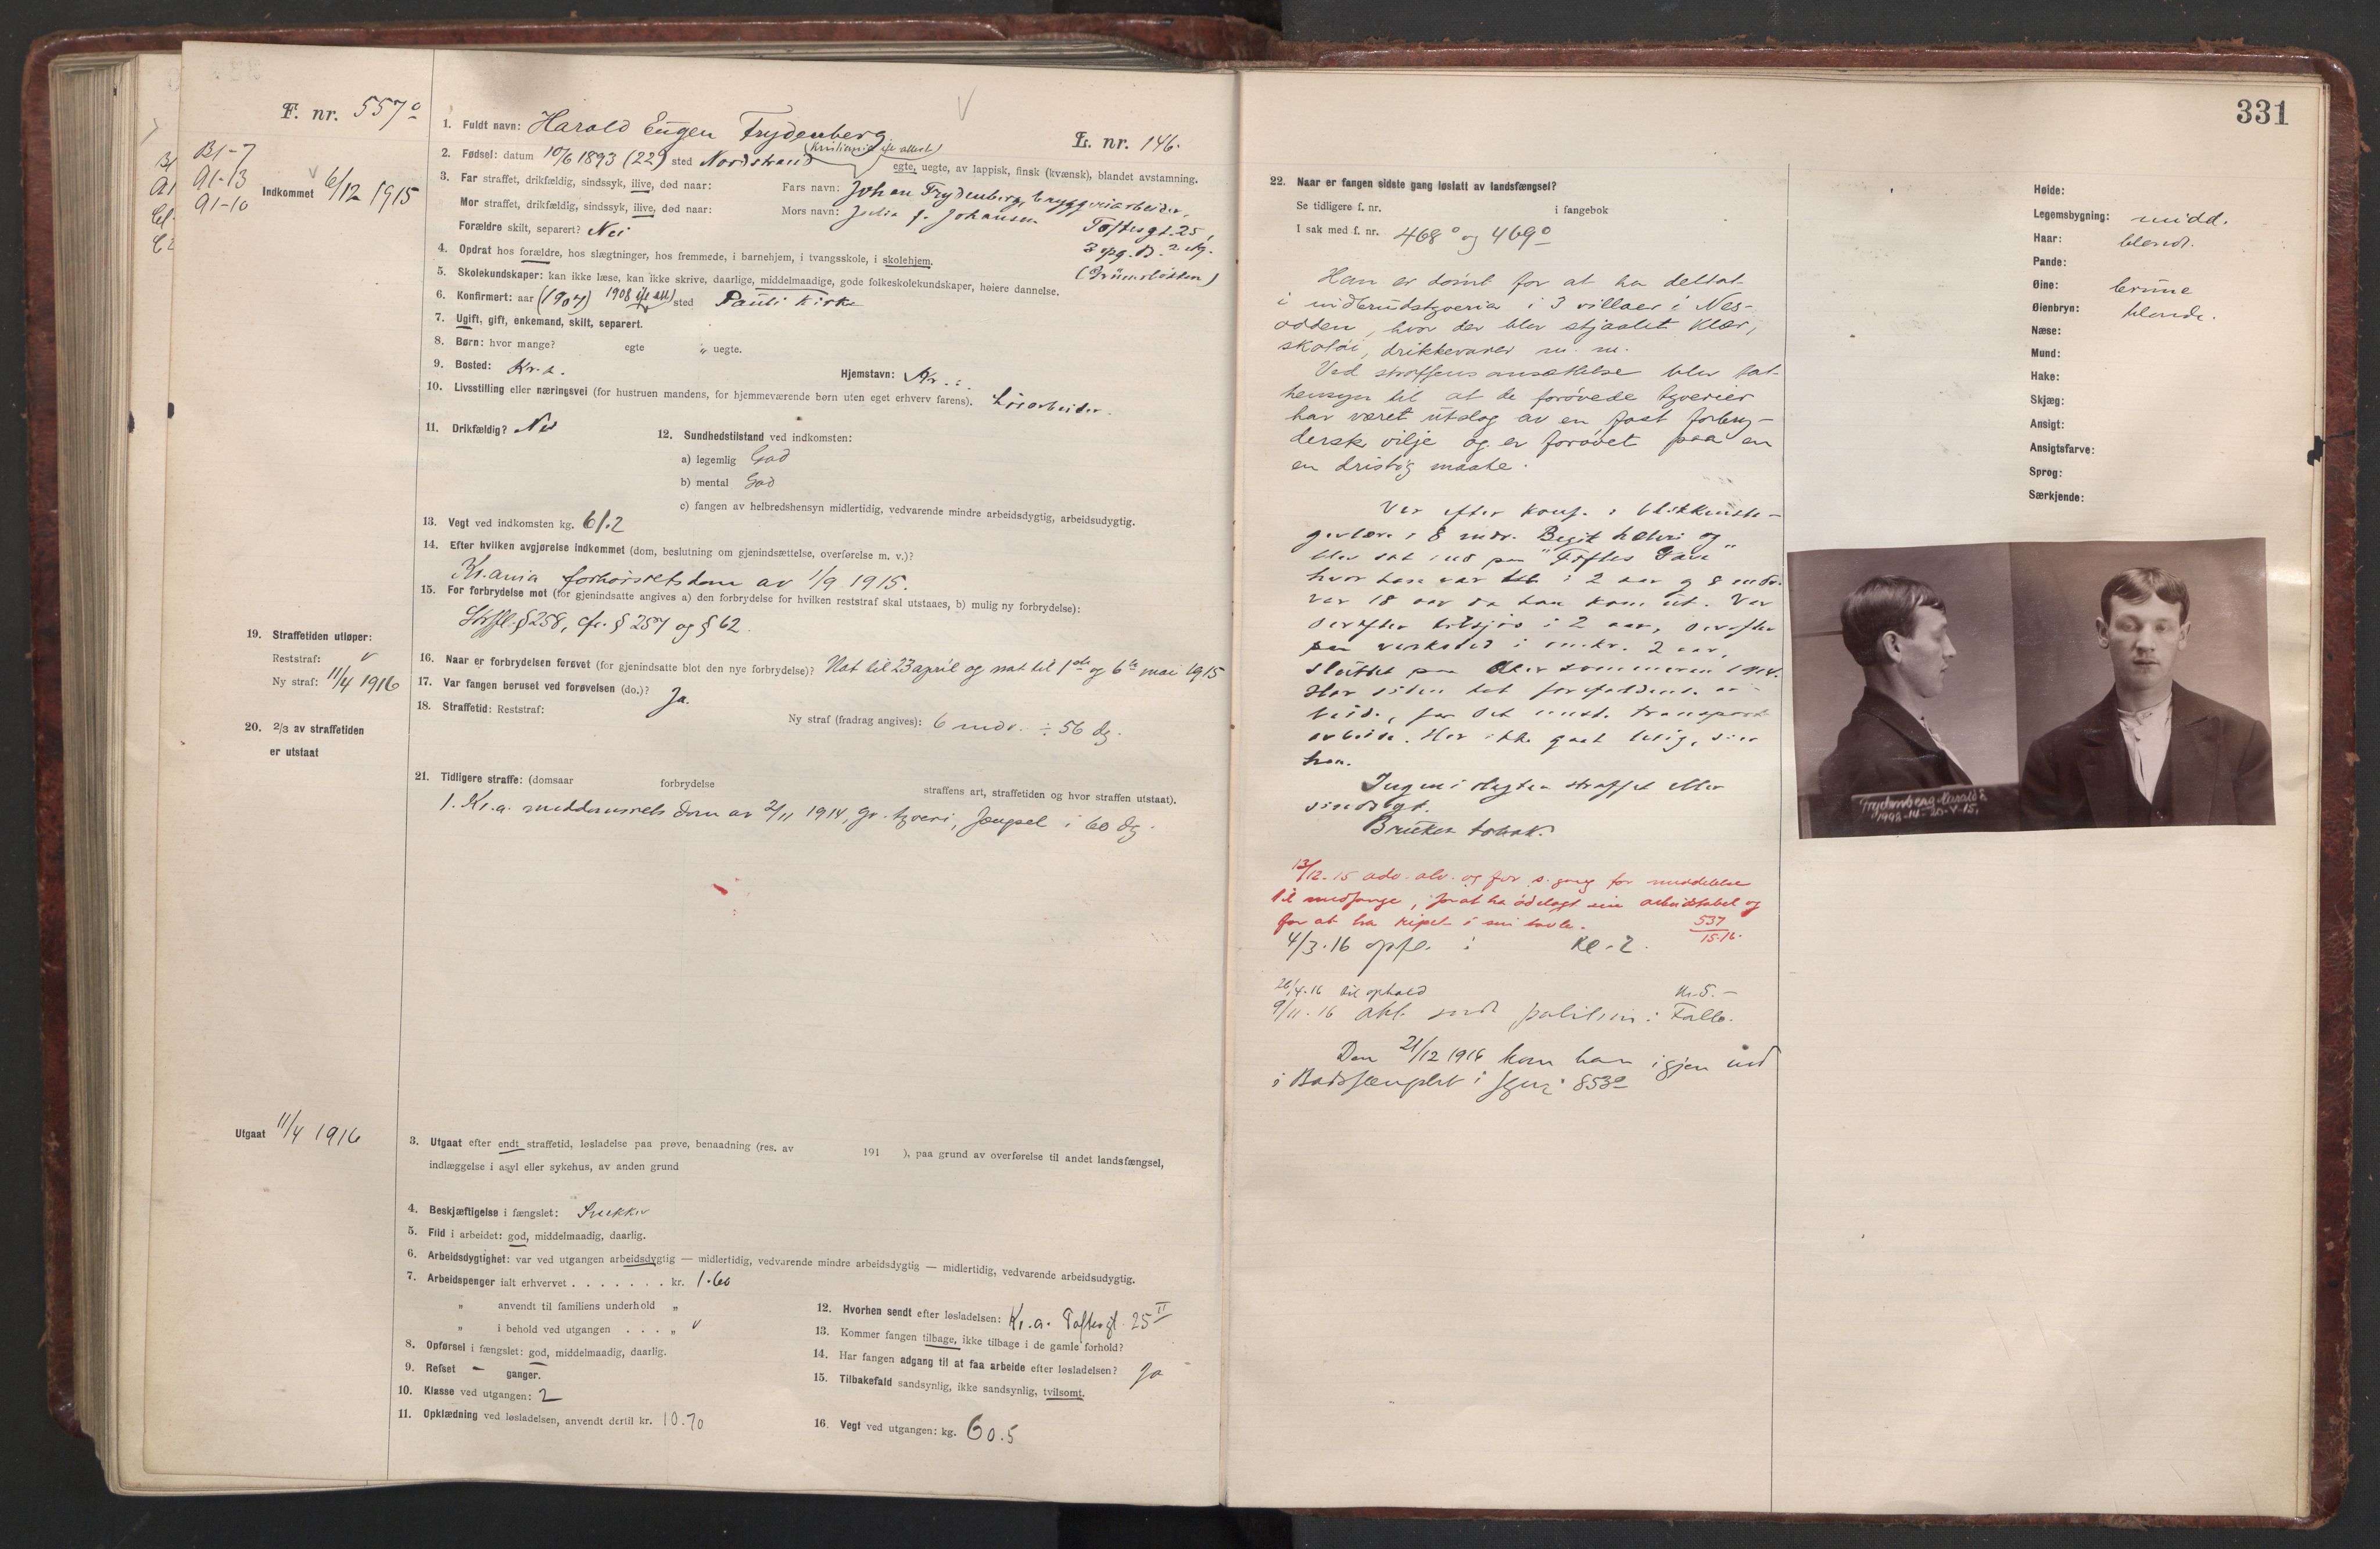 F. nr. 557º
B1-7
A1-13
A1-10
Indkommet 6/12 1915
1. Fuldt navn: Harald Eugen Frydenberg
L. nr. 146.
(Kristiania ifl. attest)
2. Fødsel: datum 10/6 1893 (22) sted Nordstrand egte, uegte, av lappisk, finsk (kvænsk), blandet avstamning.
3. Far straffet, drikfældig, sindssyk, ilive, død naar: Fars navn: Johan Frydenberg, bryggeriarbeider,
Mor straffet, drikfældig, sindssyk, ilive, død naar: Mors navn: Julia f. Johansen
Toftesgt. 25,
Forældre skilt, separert? Nei
3 opg. B. 2. etg.
4. Opdrat hos forældre, hos slægtninger, hos fremmede, i barnehjem, i tvangsskole, i skolehjem.
(Grünerløkken)
5. Skolekundskaper: kan ikke læse, kan ikke skrive, daarlige, middelmaadige, gode folkeskolekundskaper, høiere dannelse.
6. Konfirmert: aar (1907) 1908 ifl. att. sted Pauli Kirke
7. Ugift, gift, enkemand, skilt, separert.
8. Børn: hvor mange? egte „ uegte.
9. Bosted: Kr.a. Hjemstavn: Kr.a.
10. Livsstilling eller næringsvei (for hustruen mandens, for hjemmeværende børn uten eget erhverv farens). Løsarbeider.
11. Drikfældig? Nei
12. Sundhedstilstand ved indkomsten:
a) legemlig God
b) mental God
c) fangen av helbredshensyn midlertidig, vedvarende mindre arbeidsdygtig, arbeidsudygtig.
13. Vegt ved indkomsten kg. 61.2
14. Efter hvilken avgjørelse indkommet (dom, beslutning om gjenindsættelse, overførelse m. v.)?
Kr.ania forhørsretsdom av 1/9 1915.
15. For forbrydelse mot (for gjenindsatte angives a) den forbrydelse for hvilken reststraf skal utstaaes, b) mulig ny forbrydelse):
Strfl. § 258, cfr. § 257 og § 62.
19. Straffetiden utløper:
Reststraf:
Ny straf: 11/4 1916
16. Naar er forbrydelsen forøvet (for gjenindsatte blot den nye forbrydelse)? Nat til 23 april og nat til 1ste og 6te mai 1915
17. Var fangen beruset ved forøvelsen (do.)? Ja.
18. Straffetid: Reststraf: Ny straf (fradrag angives): 6 mdr. ÷ 56 dg.
20. 2/3 av straffetiden
er utstaat
21. Tidligere straffe: (domsaar forbrydelse straffens art, straffetiden og hvor straffen utstaat).
1. Kr.a. meddomsrets dom av 2/11 1914, gr. tyveri, fængsel i 60 dg.
Utgaat 11/4 1916
3. Utgaat efter endt straffetid, løsladelse paa prøve, benaadning (res. av 191 ), paa grund av overførelse til andet landsfængsel,
indlæggelse i asyl eller sykehus, av anden grund
4. Beskjæftigelse i fængslet: Snekker
5. Flid i arbeidet: god, middelmaadig, daarlig.
6. Arbeidsdygtighet: var ved utgangen arbeidsdygtig — midlertidig, vedvarende mindre arbeidsdygtig — midlertidig, vedvarende arbeidsudygtig.
7. Arbeidspenger ialt erhvervet . . . . . . . kr. 1.60
„ anvendt til familiens underhold „
„ i behold ved utgangen . . . „
8. Opførsel i fængslet: god, middelmaadig, daarlig.
9. Refset — ganger.
10. Klasse ved utgangen: 2
11. Opklædning ved løsladelsen, anvendt dertil kr. 10.70
12. Hvorhen sendt efter løsladelsen: Kr.a. Toftesgt. 25 II
13. Kommer fangen tilbage, ikke tilbage i de gamle forhold?
14. Har fangen adgang til at faa arbeide efter løsladelsen? Ja
15. Tilbakefald sandsynlig, ikke sandsynlig, tvilsomt.
16. Vegt ved utgangen: kg. 60.5
331
22. Naar er fangen sidste gang løslatt av landsfængsel?
Se tidligere f. nr. i fangebok
I sak med f. nr. 468º og 469º
Han er dømt for at ha deltat
i indbrudstyveria i 3 villaer i Nes-
odden, hvor der blev stjaalet klær,
skotøi, drikkevarer m. m.
Ved straffens ansættelse blev tat
hensyn til at de forøvede tyverier
har været utslag av en fast forbry-
dersk vilje og er forøvet paa en
en dristig maate.
Var efter konf. i blikkensla-
gerlære i 8 mdr. Begik hæleri og
blev sat ind paa "Toftes Gave"
hvor han var i 2 aar og 8 mdr.
Var 18 aar da han kom ut. Var
derefter tilsjøs i 2 aar, derefter
paa verksted i omkr. 2 aar,
sluttet paa Aker sommeren 1914.
Har siden hat forefaldende ar-
beide, for det meste transport-
arbeide. Har ikke gaat ledig, sier
han.
Ingen i slegten straffet eller
sindssyk.
Bruker tobak.
13/12-15 adv. alv. og for s. gang for meddelelse
til medfange, for at ha ødelagt sin arbeidstabel og
for at ha ripet i sin tavle. 537
15-16.
4/3.16 opfl. i Kl. 2.
26/4-16 til ophold N.S. —
9/11.16 akt. sendt politiet i Follo.
Den 21/12 1916 kom han igjen ind
i Botsfængslet i fgnr. 853º
Høide:
Legemsbygning: midd.
Haar: blondt.
Pande:
Øine: brune
Øienbryn: blonde.
Næse:
Mund:
Hake:
Skjæg:
Ansigt:
Ansigtsfarve:
Sprog:
Særkjende:
Frydenberg Harald E.
1998-14-20-V-15.